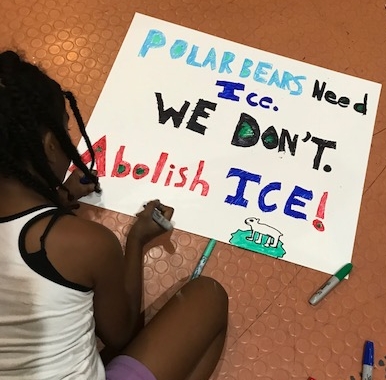 POLAR BEARS Need
Ice.
WE DON'T.
Abolish ICE!